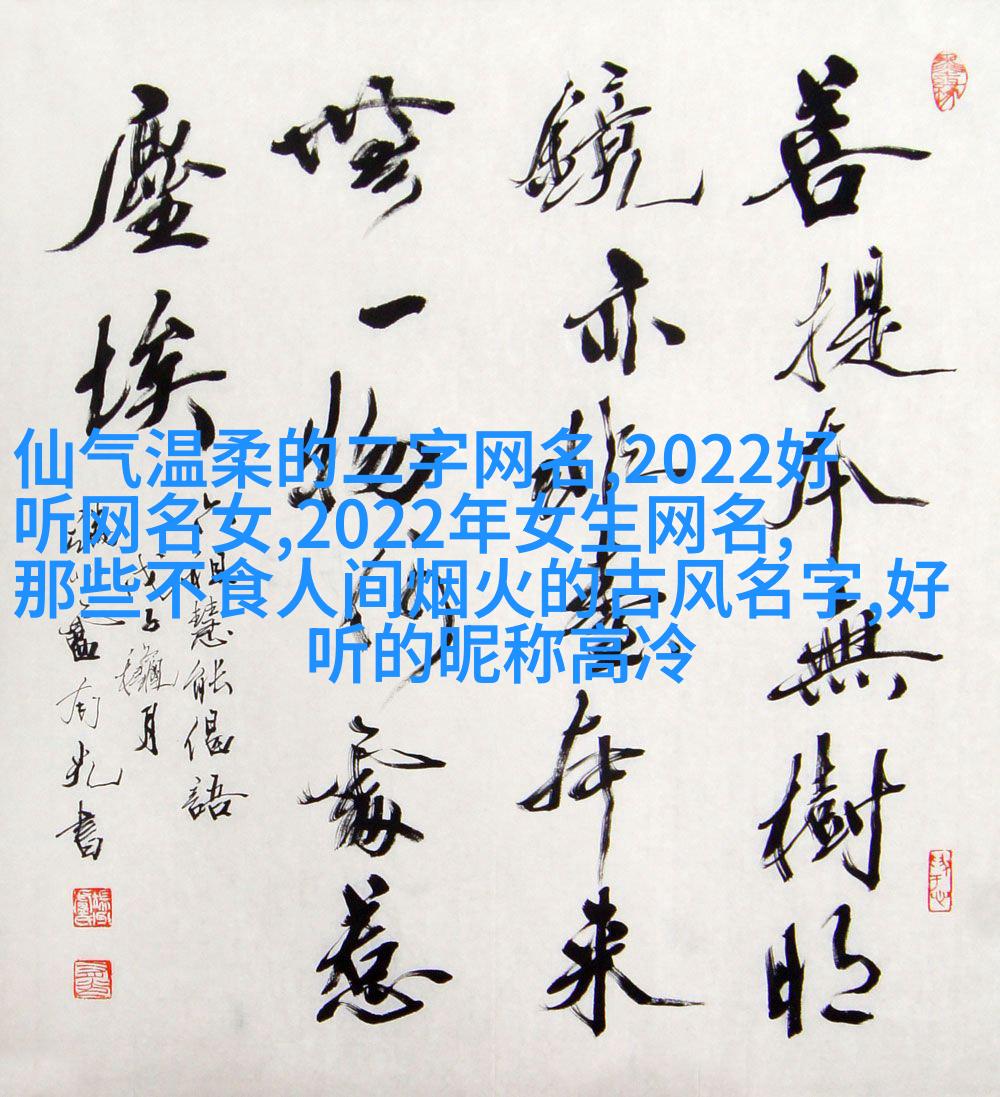 仙气温柔的二字网名,2022好
听网名女,2022年女生网名,
那些不食人间烟火的古风名字,好
听的昵称高冷
菩提本無樹明
鏡亦非臺本来
無一物何處惹
塵埃
六祖慧能偈語
戊子穐月
書